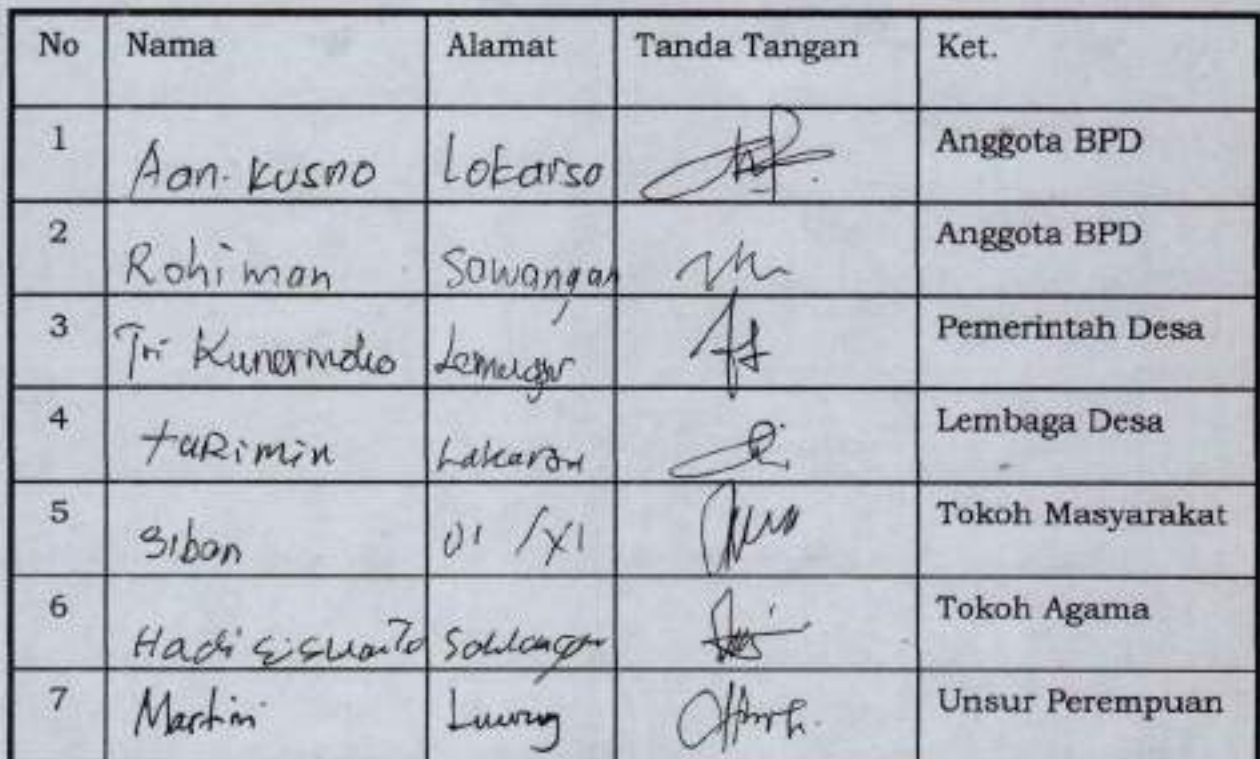 No Nama Alamat Tanda Tangan Ket.
1 Aan. Kusno Lokarso Anggota BPD
2 Rohiman Sawangan Anggota BPD
3 Tri Pemerintah Desa
4 taRimin Lembaga Desa
5 Siban 01 /XI Tokoh Masyarakat
6 Hadi Siswanto Sawangan Tokoh Agama
7 Martini Luwung Unsur Perempuan